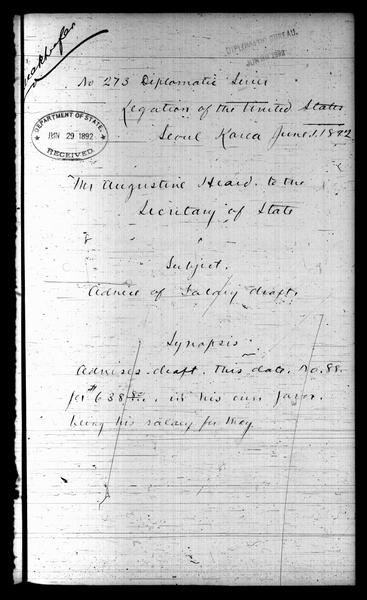 DIPLOMATIC BUREAU.
1892
No 273 Diplomatic Series
Legation of the United States
Seoul Korea June 1, 1892
DEPARTMENT OF STATE,
JUN 29 1892
RECEIVED.
Mr Augustine Heard to the
Secretary of State
Subject.
Advice of Salary draft.
Synopsis
Advises draft, this date, No. 88.
for $638. in his own favor.
being his salary for May.